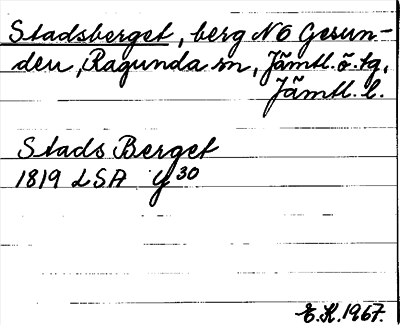 Stadsberget, berg NO Gesun-
den, Ragunda sn, Jämtl. ö. tg,
Jämtl. l.
Stads Berget
1819 LSA Y 30
E.K. 1967.